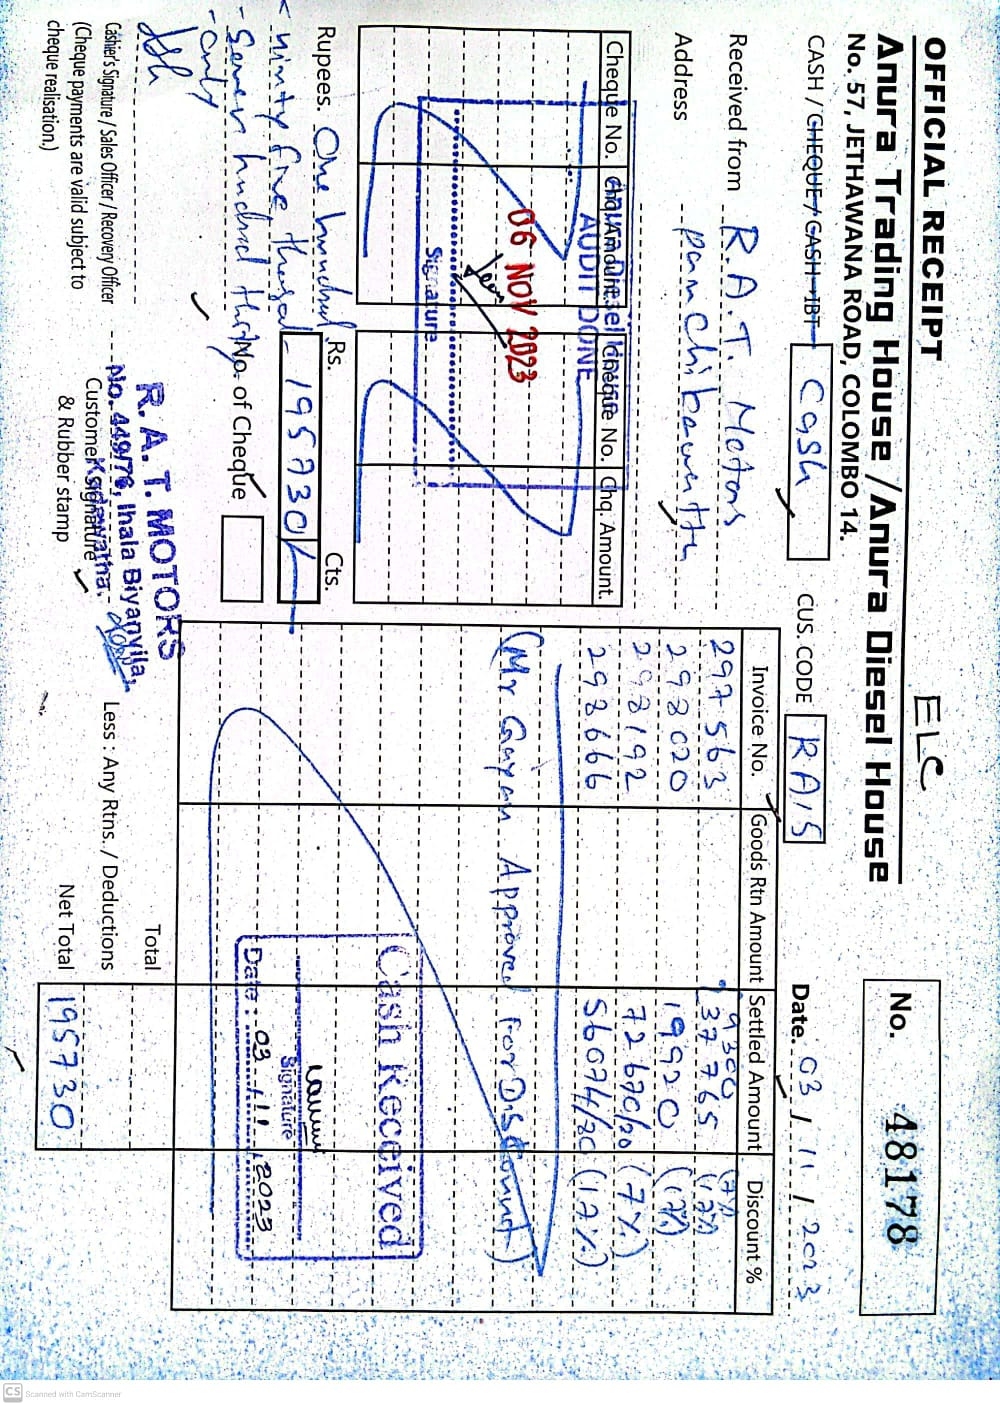 OFFICIAL RECEIPT
ELC
No. 48178
Anura Trading House / Anura Diesel House
No. 57, JETHAWANA ROAD, COLOMBO 14.
CASH / CHEQUE / CASH IBT Cash
CUS. CODE RA15
Date. 03 / 11 / 2023
Received from R.A.T. Motors
Address
Cheque No. Chq. Amount. Cheque No. Chq. Amount.
AUDIT DONE
06 NOV 2023
Signature
Rs. Cts.
195730/-
Rupees. One hundred
ninty five thousand
seven hundred thirty
only
No. of Cheque
Cashier's Signature / Sales Officer / Recovery Officer
(Cheque payments are valid subject to
cheque realisation.)
R. A. T. MOTORS
No. 449/76, Ihala Biyanvila,
Kadawatha.
Customer Signature
& Rubber stamp
Invoice No. Goods Rtn Amount Settled Amount Discount %
9300 (7%)
297563 37765 (17%)
298020 19920 (17%)
298192 72670/20 (7%)
298666 56074/80 (17%)
(Mr Gayan Approved For Discount)
Cash Received
Signature
Date : 03 / 11 / 2023
Total
Less : Any Rtns. / Deductions
Net Total 195730
CS Scanned with CamScanner